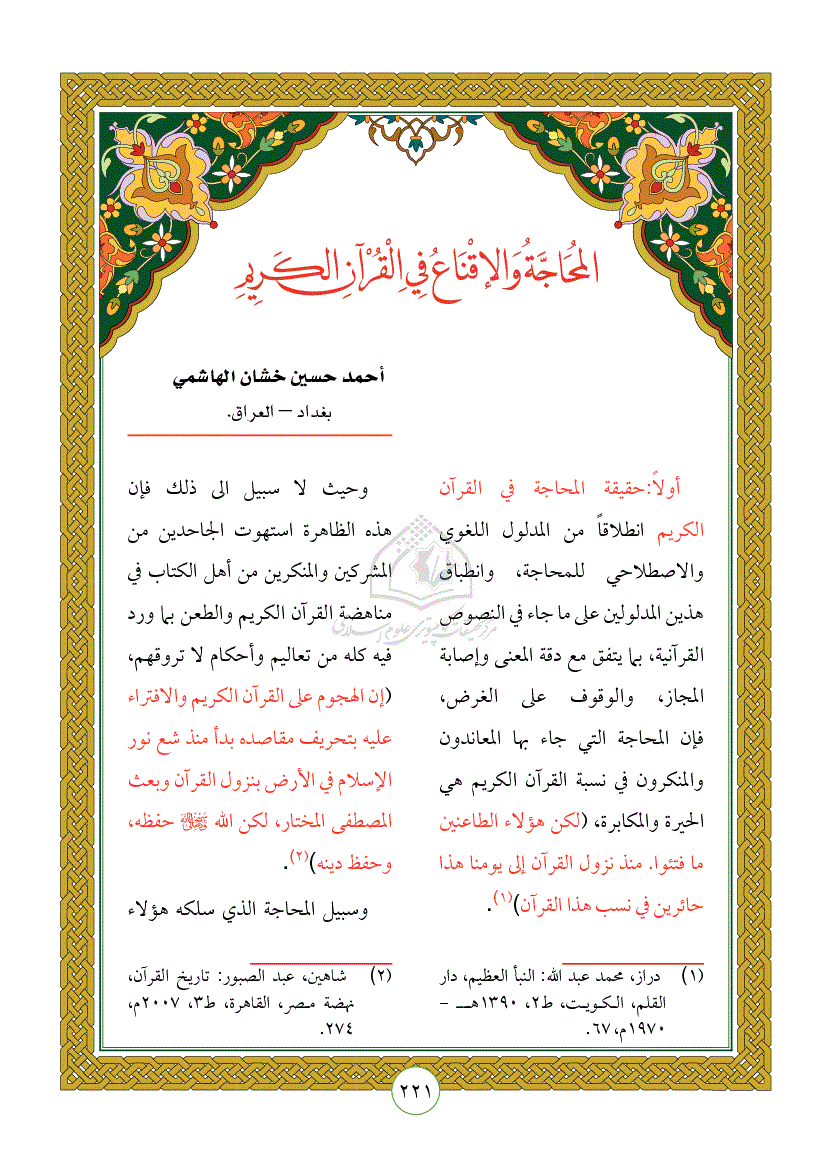 المُحَاجَّةُ وَالإِقْنَاعُ فِي الْقُرْآنِ الْكَرِيمِ
أحمد حسين خشان الهاشمي
بغداد – العراق.
أولاً: حقيقة المحاجة في القرآن
الكريم انطلاقاً من المدلول اللغوي
والاصطلاحي للمحاجة، وانطباق
هذين المدلولين على ما جاء في النصوص
القرآنية، بما يتفق مع دقة المعنى وإصابة
المجاز، والوقوف على الغرض،
فإن المحاجة التي جاء بها المعاندون
والمنكرون في نسبة القرآن الكريم هي
الحيرة والمكابرة، (لكن هؤلاء الطاعنين
ما فتئوا. منذ نزول القرآن إلى يومنا هذا
حائرين في نسب هذا القرآن)(١).
(١) دراز، محمد عبد الله: النبأ العظيم، دار
القلم، الكويت، ط٢، ١٣٩٠هـ -
١٩٧٠م، ٦٧.
وحيث لا سبيل الى ذلك فإن
هذه الظاهرة استهوت الجاحدين من
المشركين والمنكرين من أهل الكتاب في
مناهضة القرآن الكريم والطعن بما ورد
فيه كله من تعاليم وأحكام لا تروقهم،
(إن الهجوم على القرآن الكريم والافتراء
عليه بتحريف مقاصده بدأ منذ شع نور
الإسلام في الأرض بنزول القرآن وبعث
المصطفى المختار، لكن الله ﷺ حفظه،
وحفظ دينه)(٢).
وسبيل المحاجة الذي سلكه هؤلاء
(٢) شاهين، عبد الصبور: تاريخ القرآن،
نهضة مصر، القاهرة، ط٣، ٢٠٠٧م،
٢٧٤.
مركز تحقيقات كامپيوتری علوم اسلامی
٢٢١